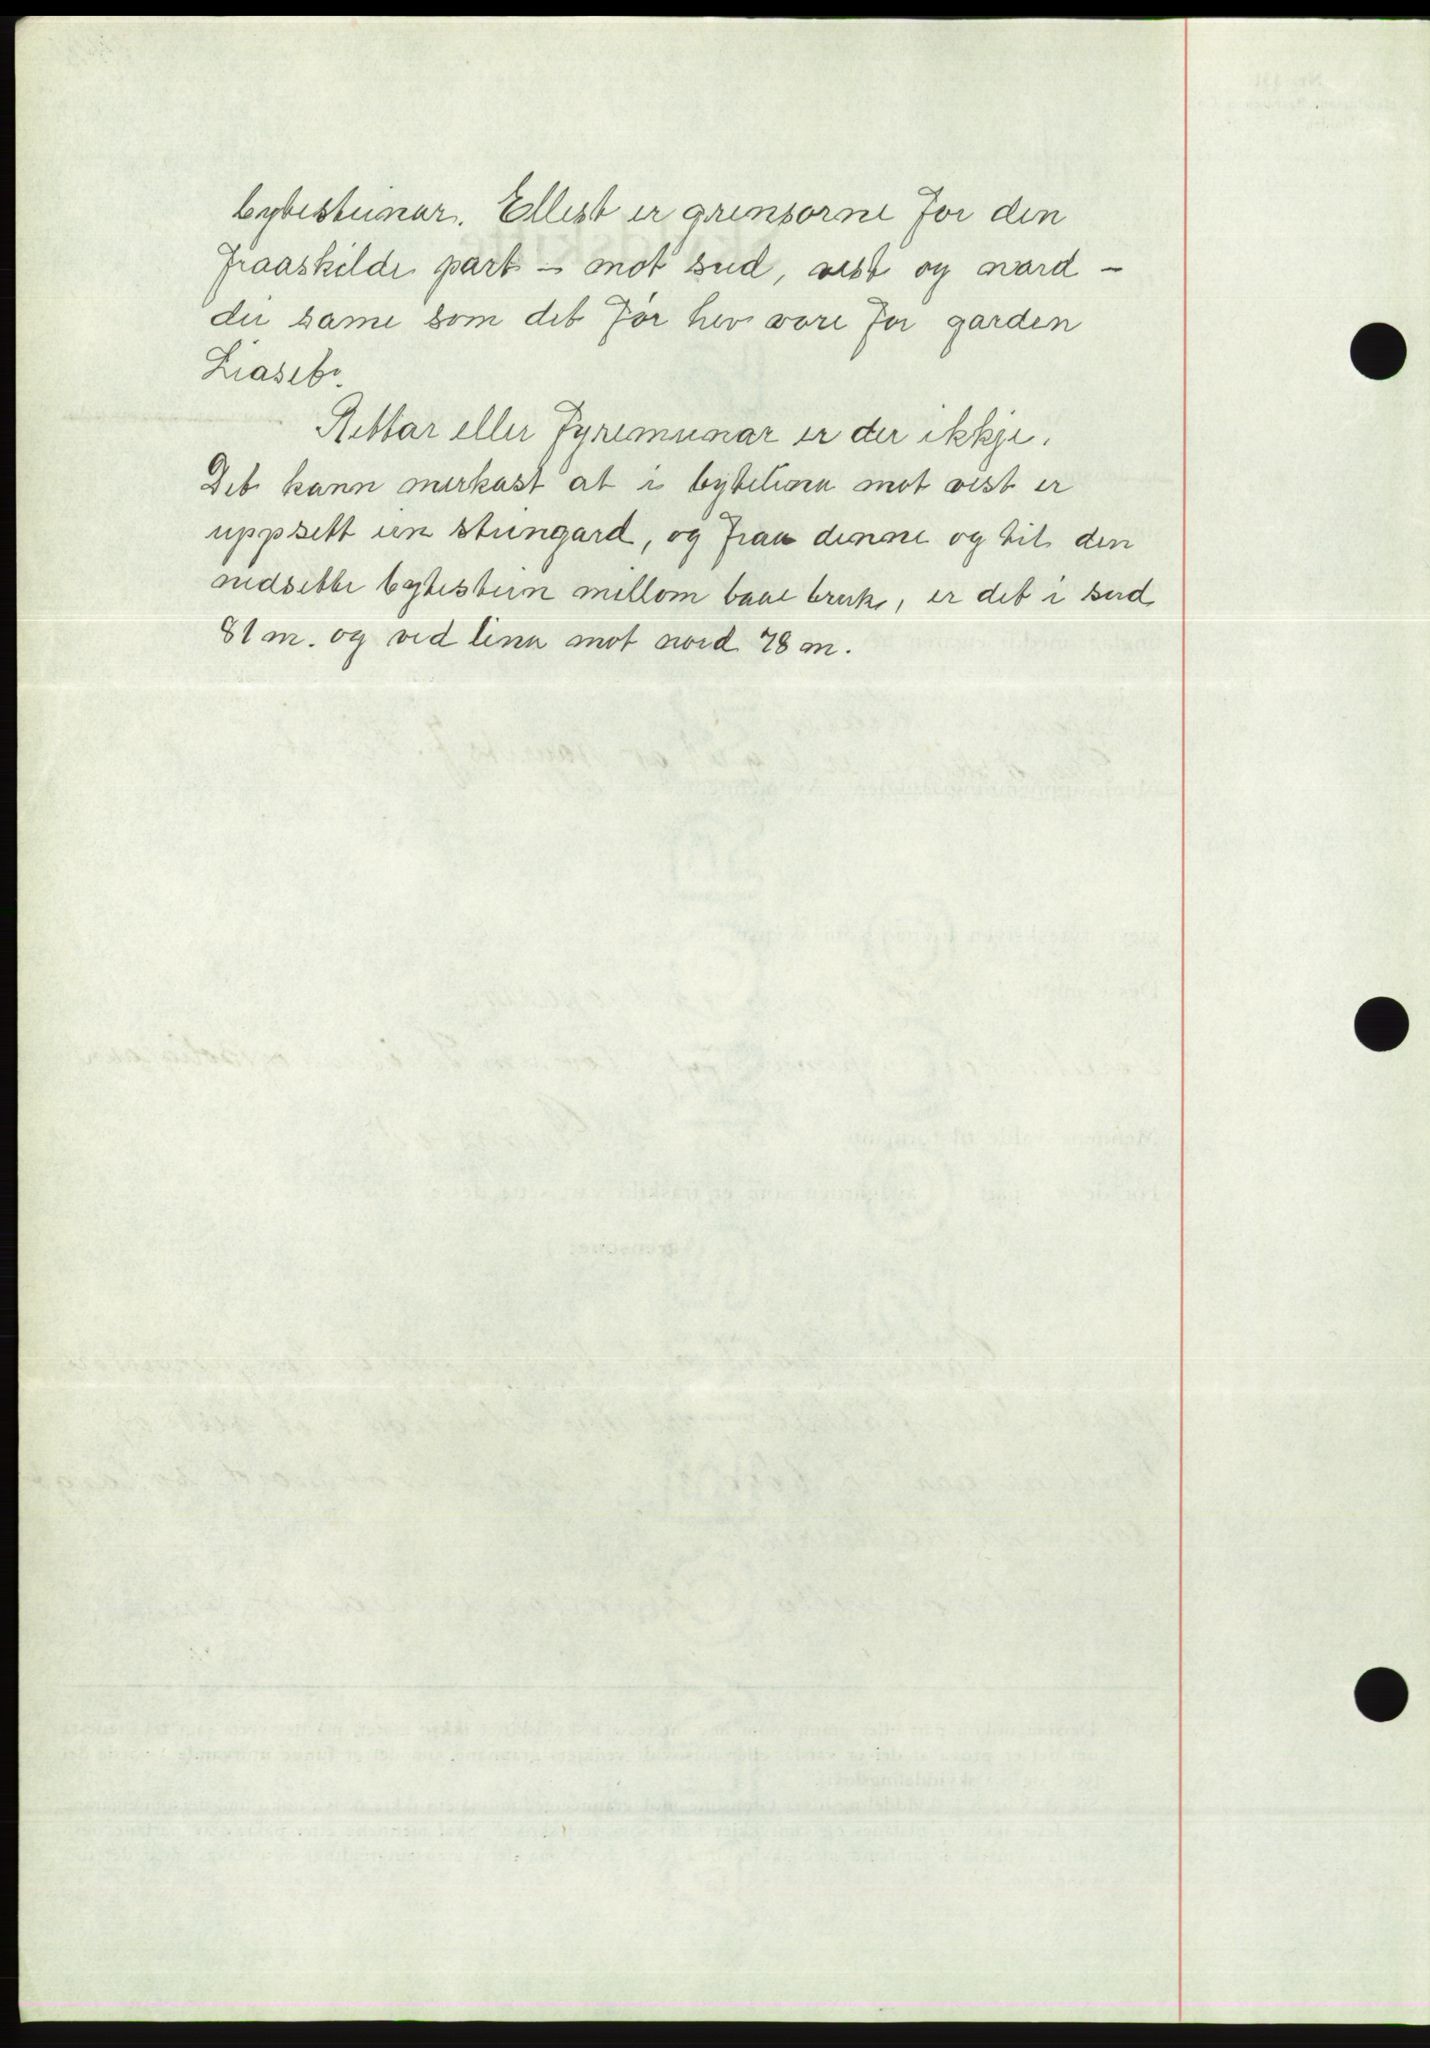 bytesteinar. Ellest er grensorne for den
fraaskilde part – mot sud, vest og nord –
dei same som det før hev vore for garden
Liaset.
Rettar eller fyremunar er der ikkje.
Det kann merkast at i bytelina mot vest er
uppsett ein steingard, og fraa denne og til den
nedsette bytestein millom baae bruk, er det i sud
81 m. og ved lina mot nord 78 m.